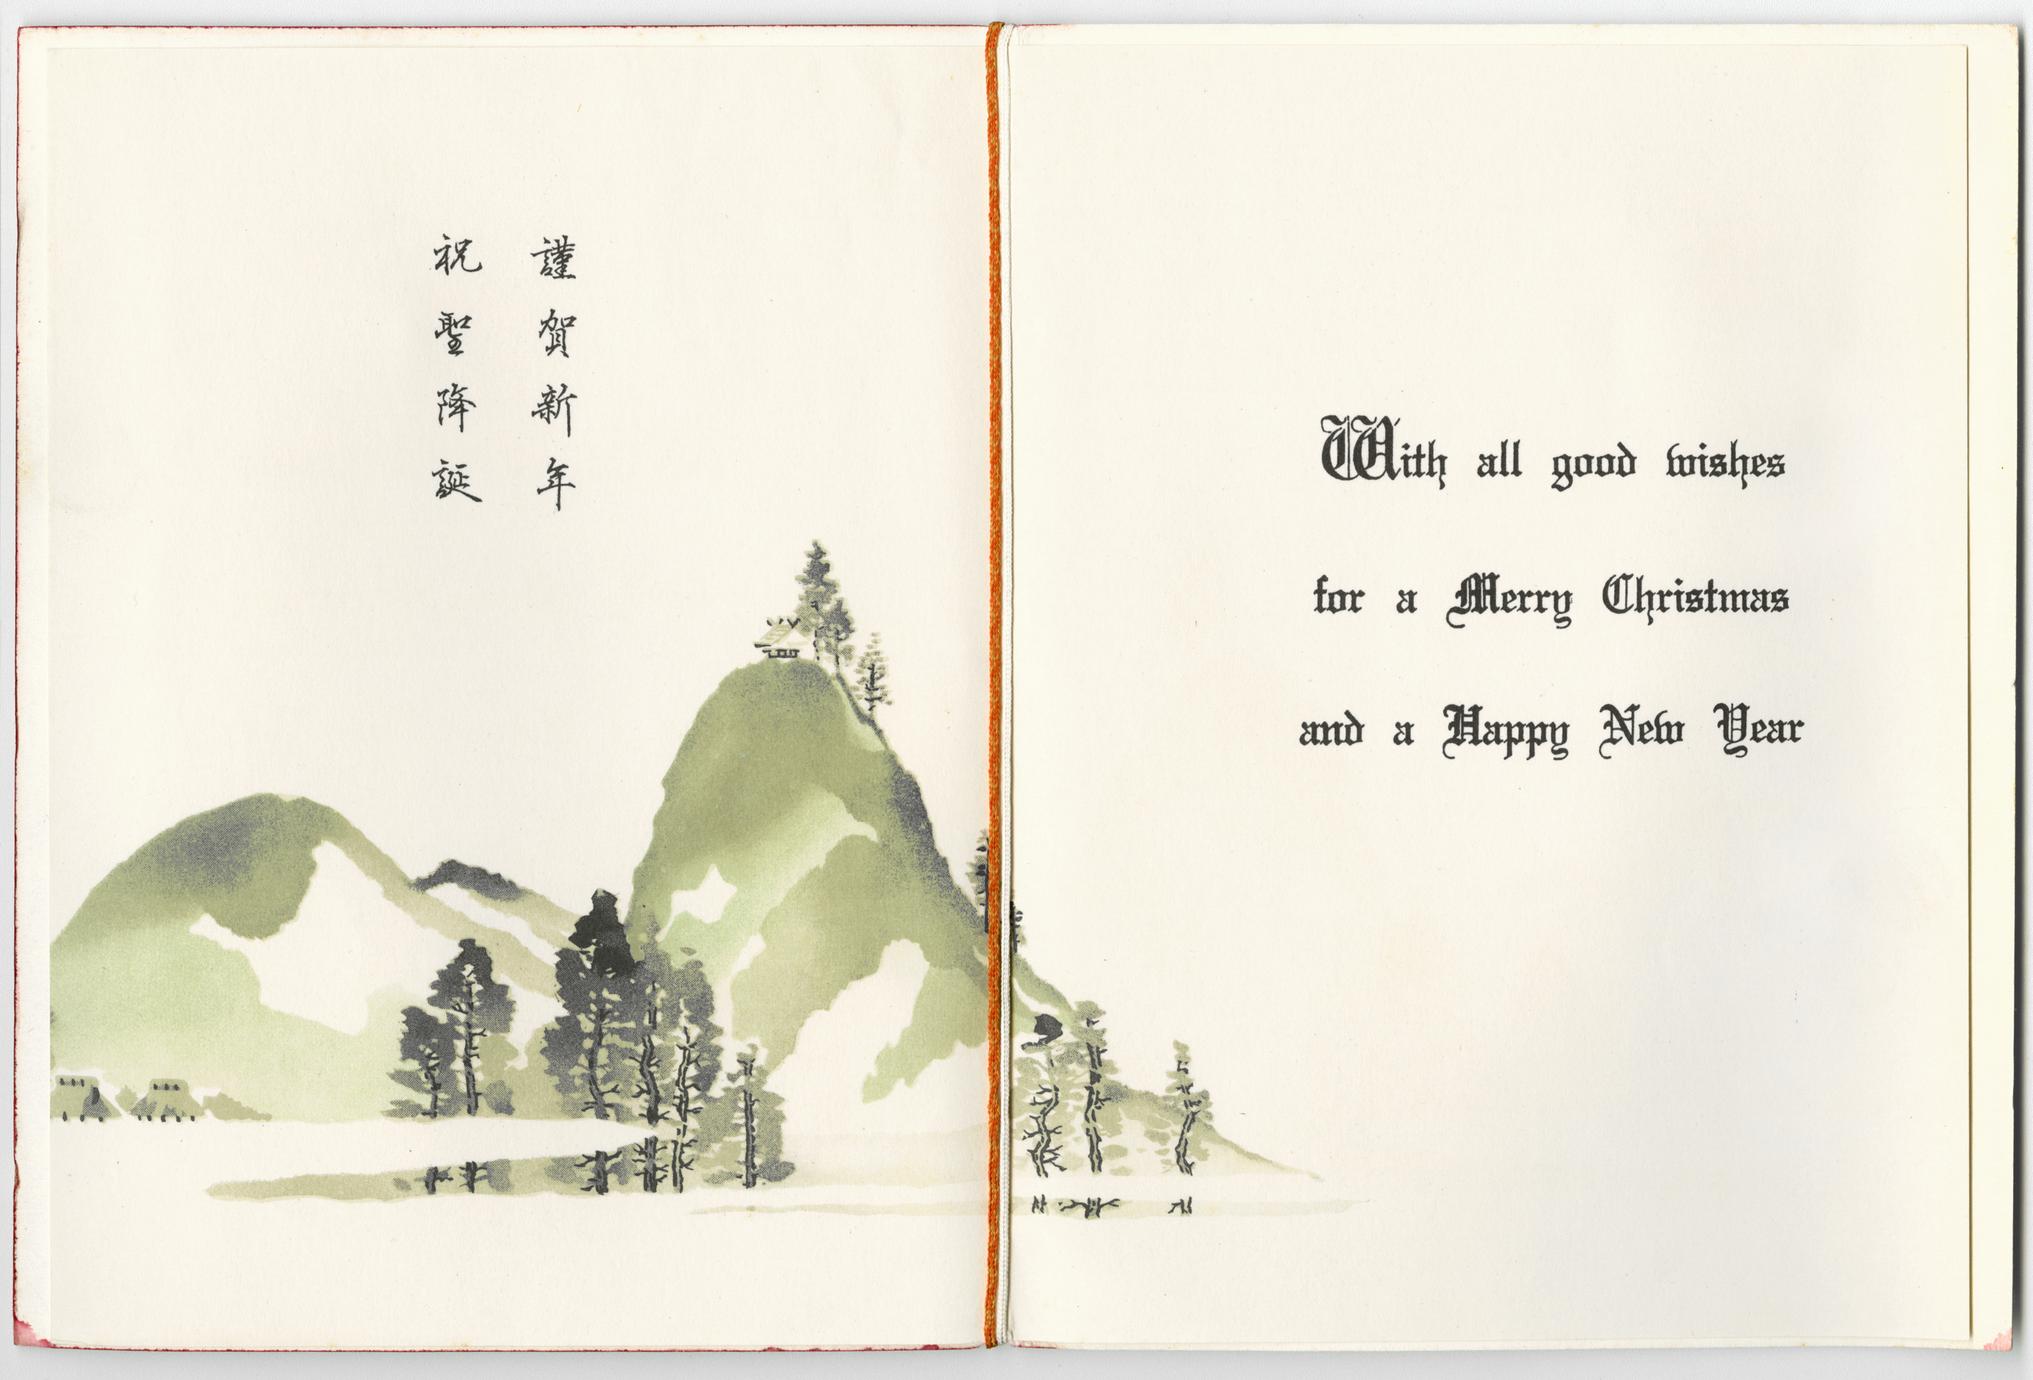 謹賀新年
祝聖降誕
With all good wishes
for a Merry Christmas
and a Happy New Year